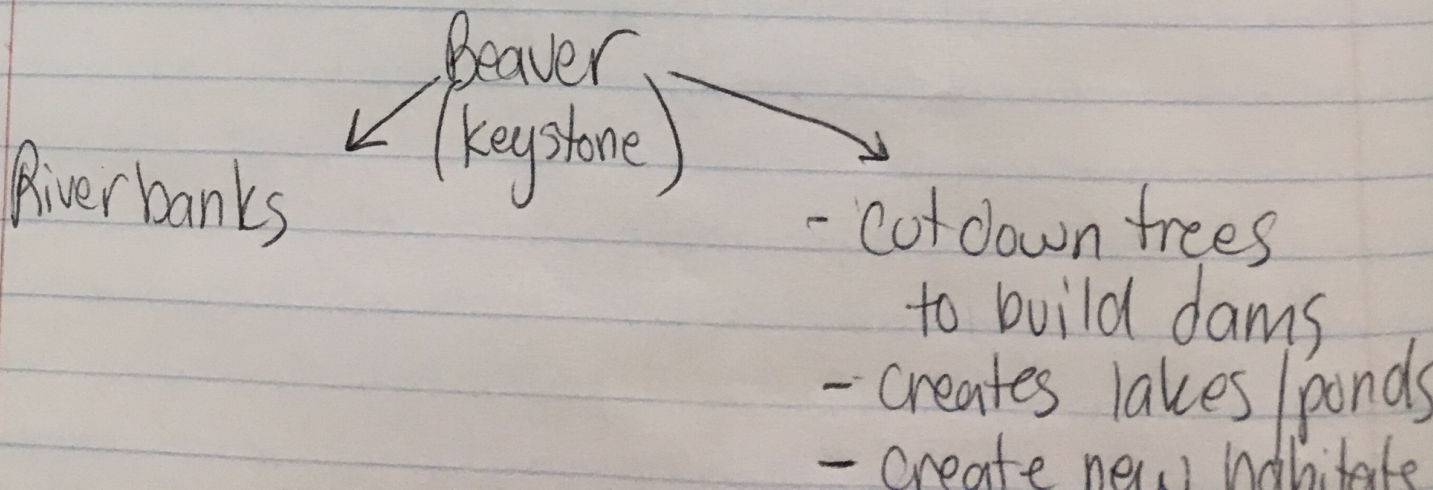 Beaver
(keystone)
Riverbanks
- cut down trees
to build dams
- creates lakes/ponds
- create new habitats